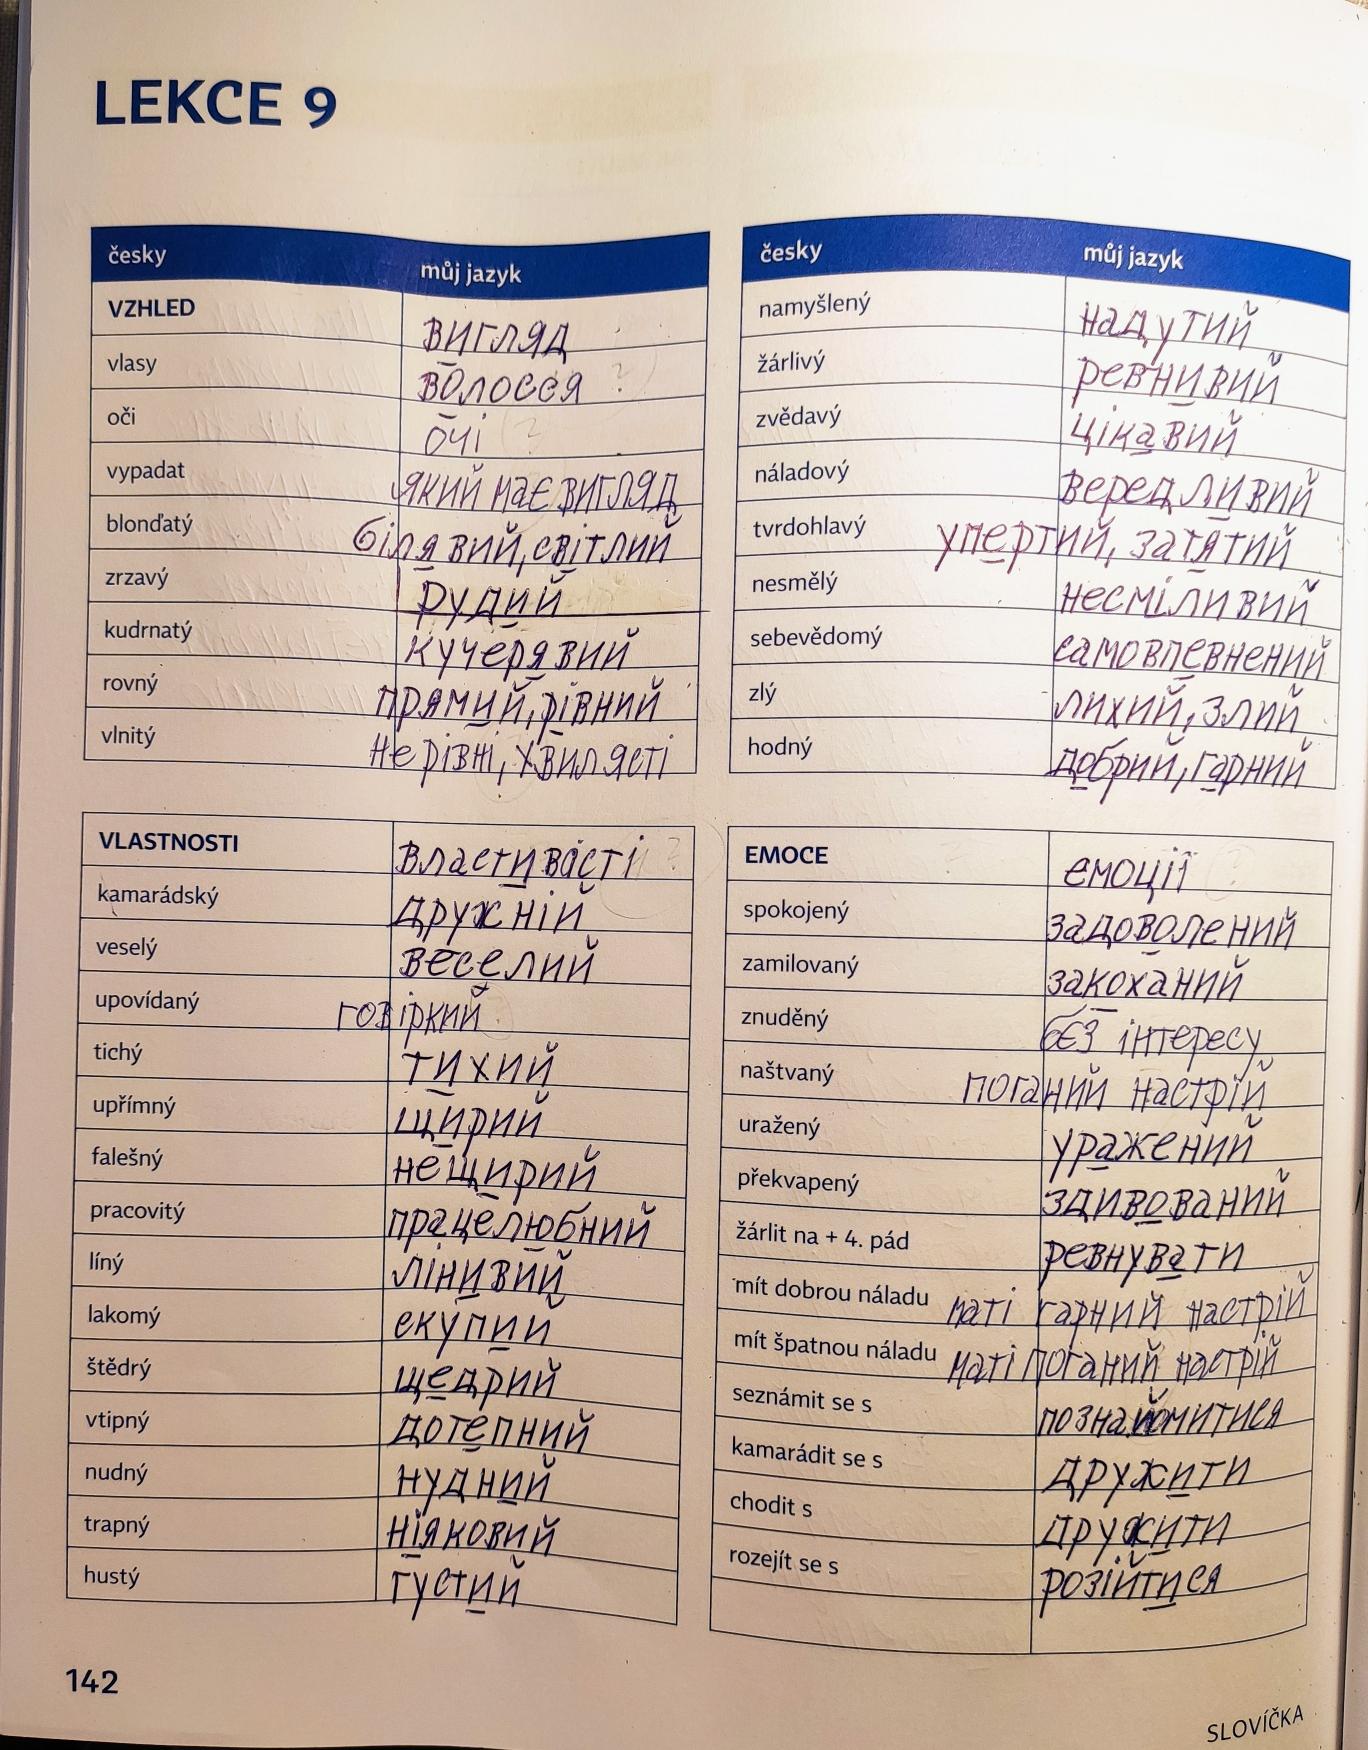 LEKCE 9
česky můj jazyk
VZHLED вигляд
vlasy волосся ?
oči очі ?
vypadat який має вигляд
blonďatý білявий, світлий
zrzavý рудий
kudrnatý кучерявий
rovný прямий, рівний
vlnitý нерівні, хвилясті
VLASTNOSTI властивості ?
kamarádský дружній
veselý веселий
upovídaný говіркий
tichý тихий
upřímný щирий
falešný нещирий
pracovitý працелюбний
líný лінивий
lakomý скупий
štědrý щедрий
vtipný дотепний
nudný нудний
trapný ніяковий
hustý густий
česky můj jazyk
namyšlený надутий
žárlivý ревнивий
zvědavý цікавий
náladový вередливий
tvrdohlavý упертий, затятий
nesmělý несміливий
sebevědomý самовпевнений
zlý лихий, злий
hodný добрий, гарний
EMOCE емоції ?
spokojený задоволений
zamilovaný закоханий
znuděný без інтересу
naštvaný поганий настрій
uražený уражений
překvapený здивований
žárlit na + 4. pád ревнувати
mít dobrou náladu маті гарний настрій
mít špatnou náladu маті поганий настрій
seznámit se s познайомитися
kamarádit se s дружити
chodit s дружити
rozejít se s розійтися
142
SLOVÍČKA